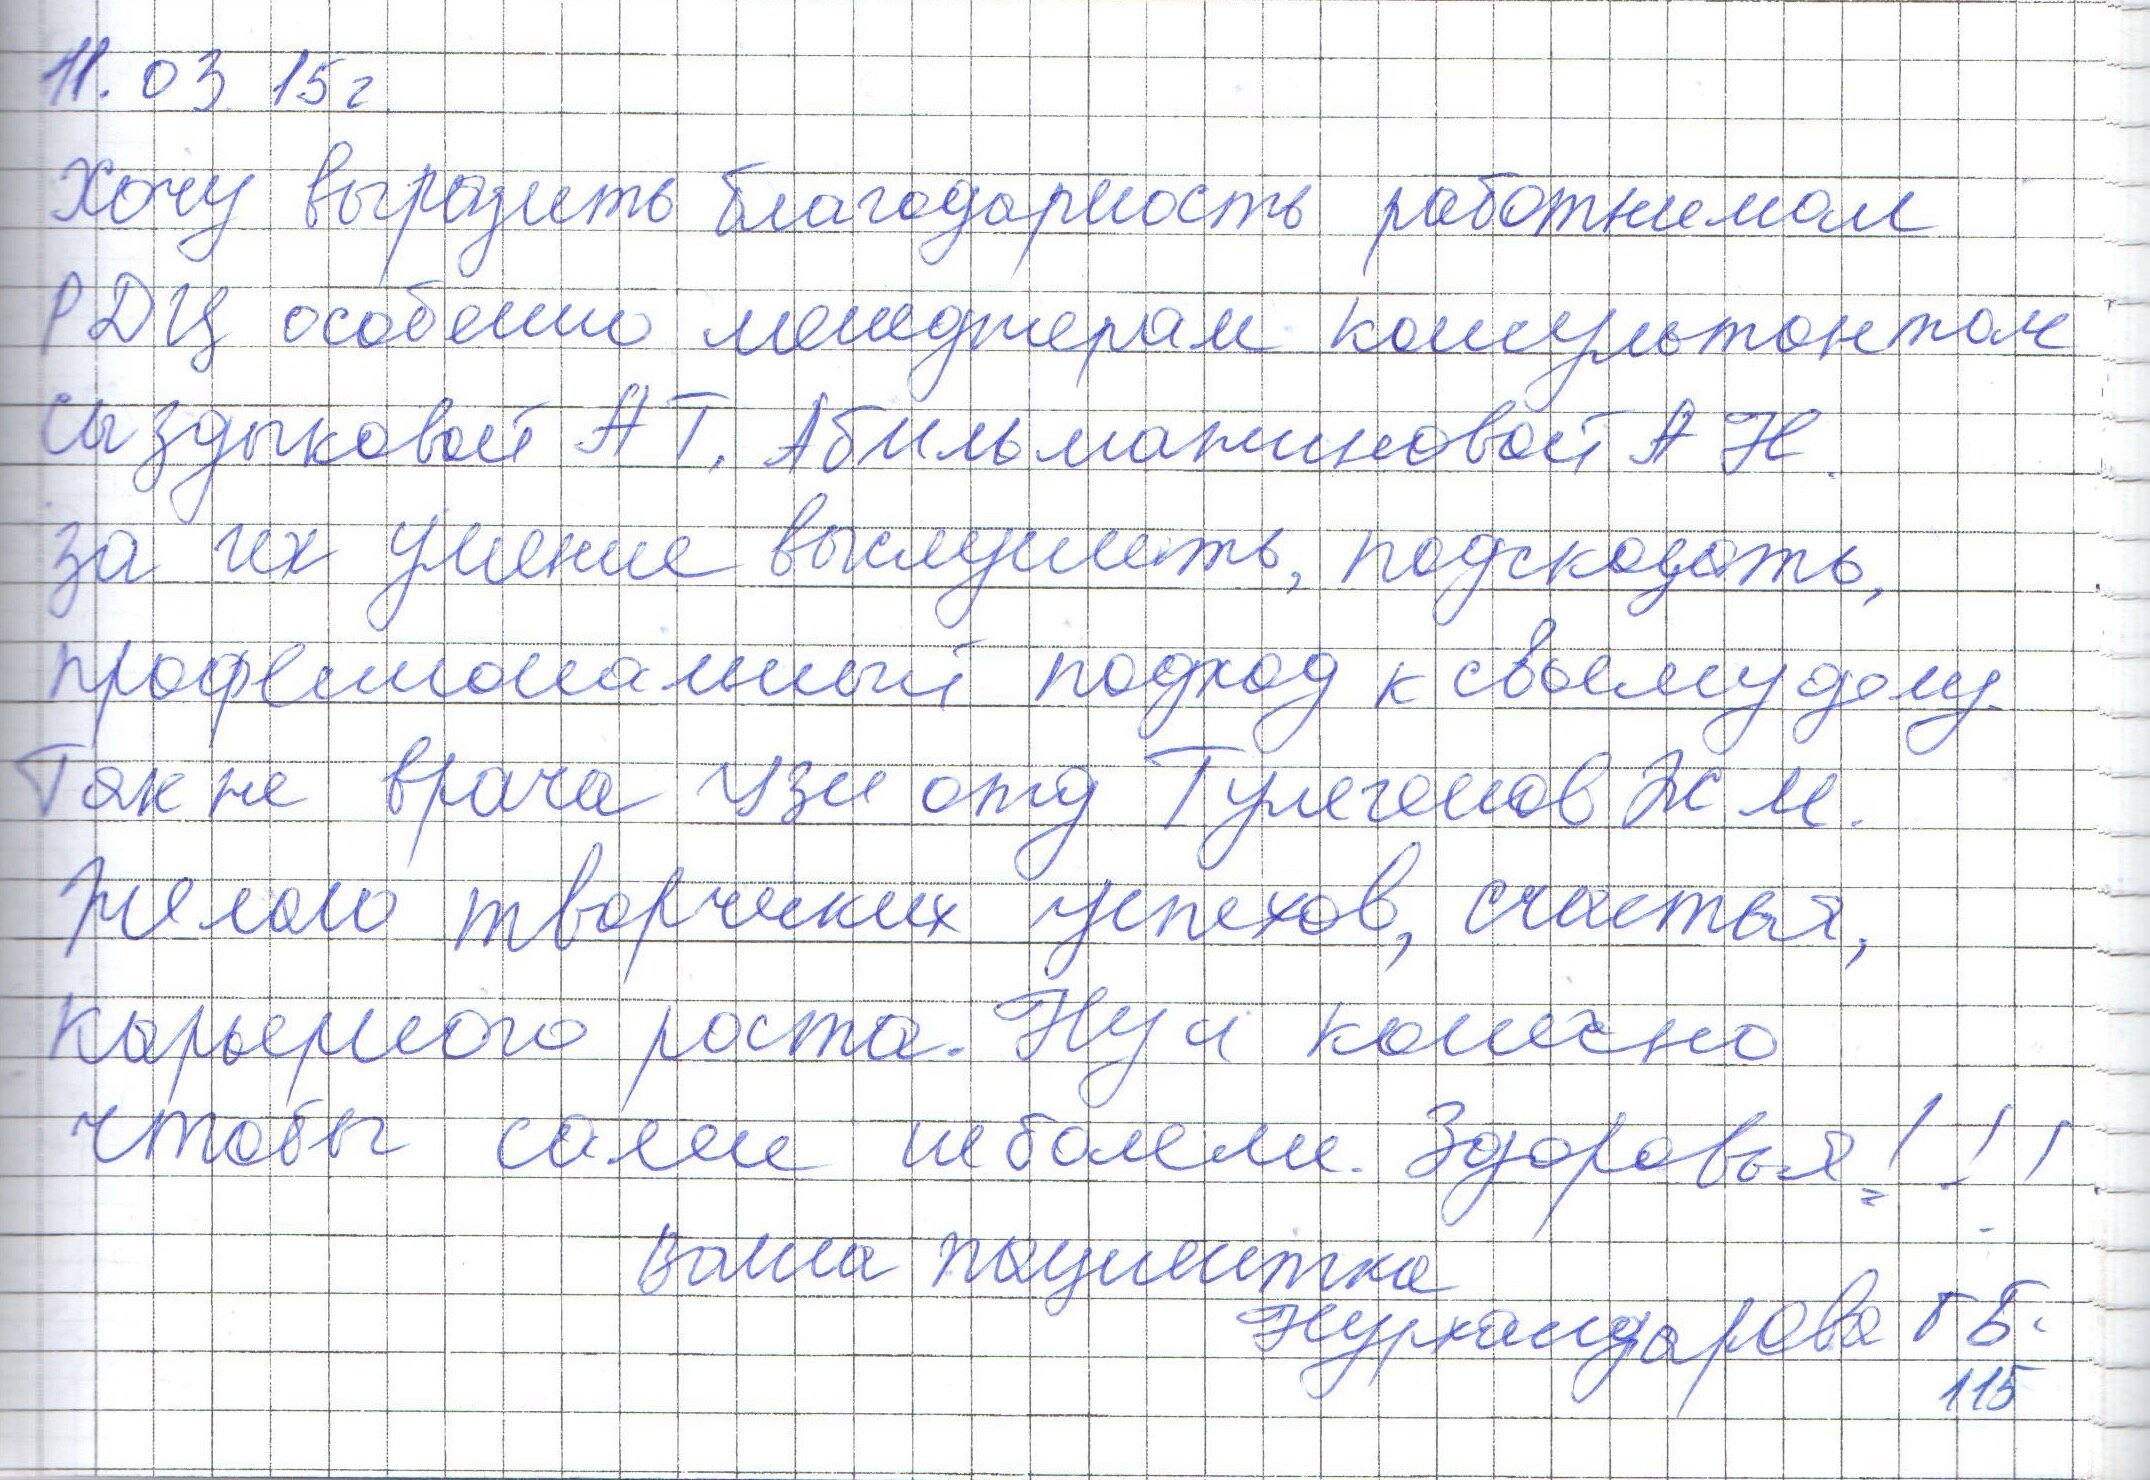 11.03 15г.
Хочу выразить благодарность работникам
РДЦ особенно менеджерам консультантам
Сыздыковой А Т. Абильмажиновой А Н.
за их умение выслушать, подсказать,
профессиональный подход к своему делу.
Также врача узи отд Тулегенов Ж М.
Желаю творческих успехов, счастья,
карьерного роста. Ну и конечно
чтобы сами не болели. Здоровья!!!
Ваша пациентка
Нурхандарова Г Б.
115